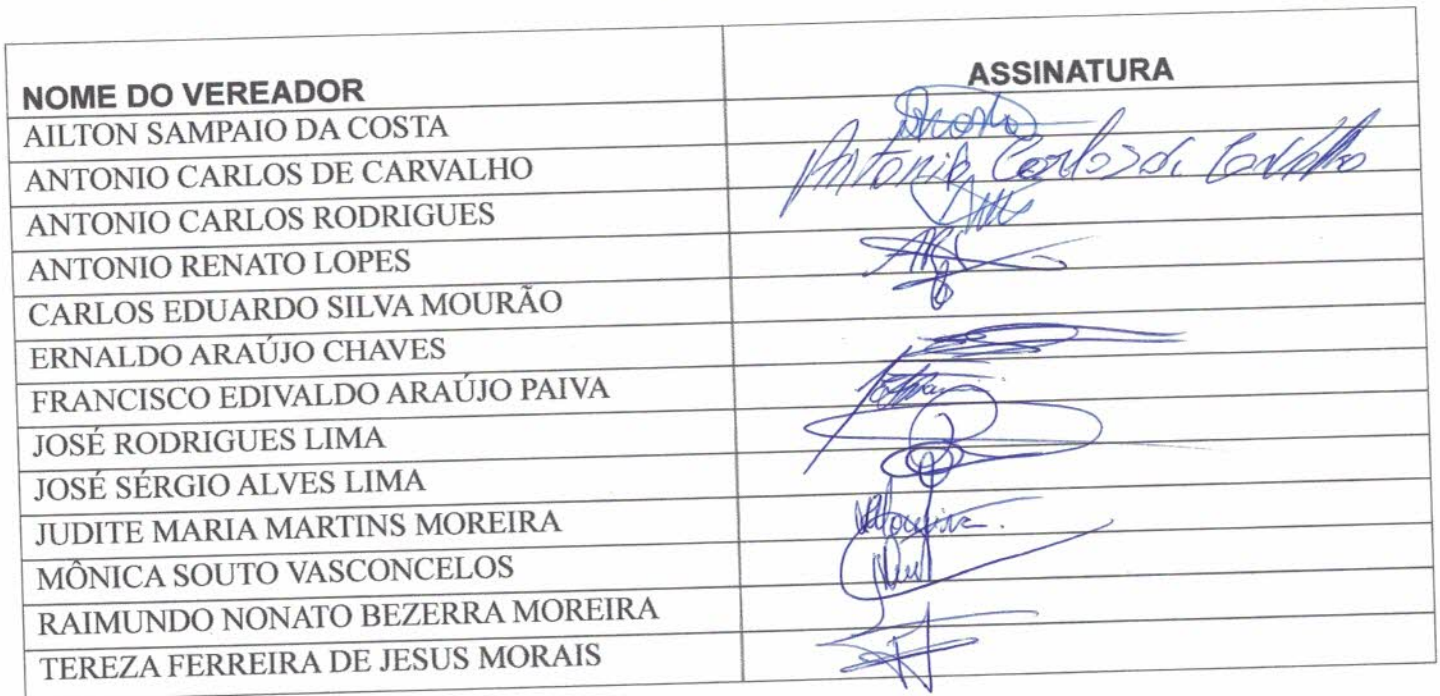 NOME DO VEREADOR ASSINATURA
AILTON SAMPAIO DA COSTA
ANTONIO CARLOS DE CARVALHO Antonio Carlos de Carvalho
ANTONIO CARLOS RODRIGUES
ANTONIO RENATO LOPES
CARLOS EDUARDO SILVA MOURÃO
ERNALDO ARAÚJO CHAVES
FRANCISCO EDIVALDO ARAÚJO PAIVA
JOSÉ RODRIGUES LIMA
JOSÉ SÉRGIO ALVES LIMA
JUDITE MARIA MARTINS MOREIRA
MÔNICA SOUTO VASCONCELOS
RAIMUNDO NONATO BEZERRA MOREIRA
TEREZA FERREIRA DE JESUS MORAIS